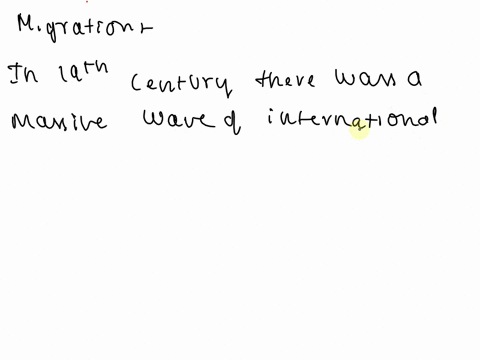 Migration
In 19th century there wass a
massive wave of international